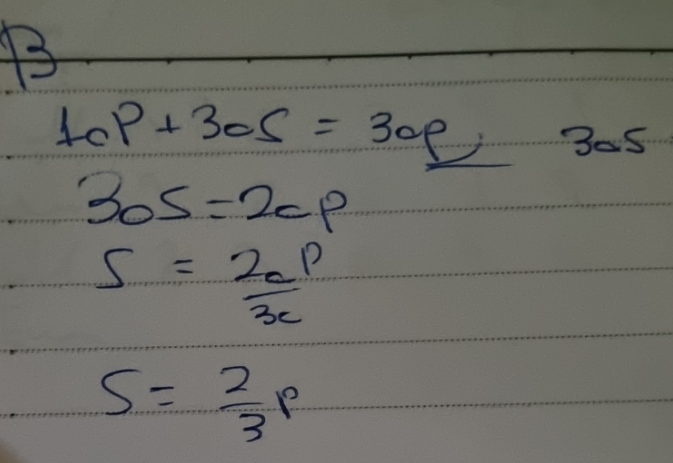 B
10P + 30S = 30P 30S
30S = 20P
S = 20P/30
S = 2/3 P